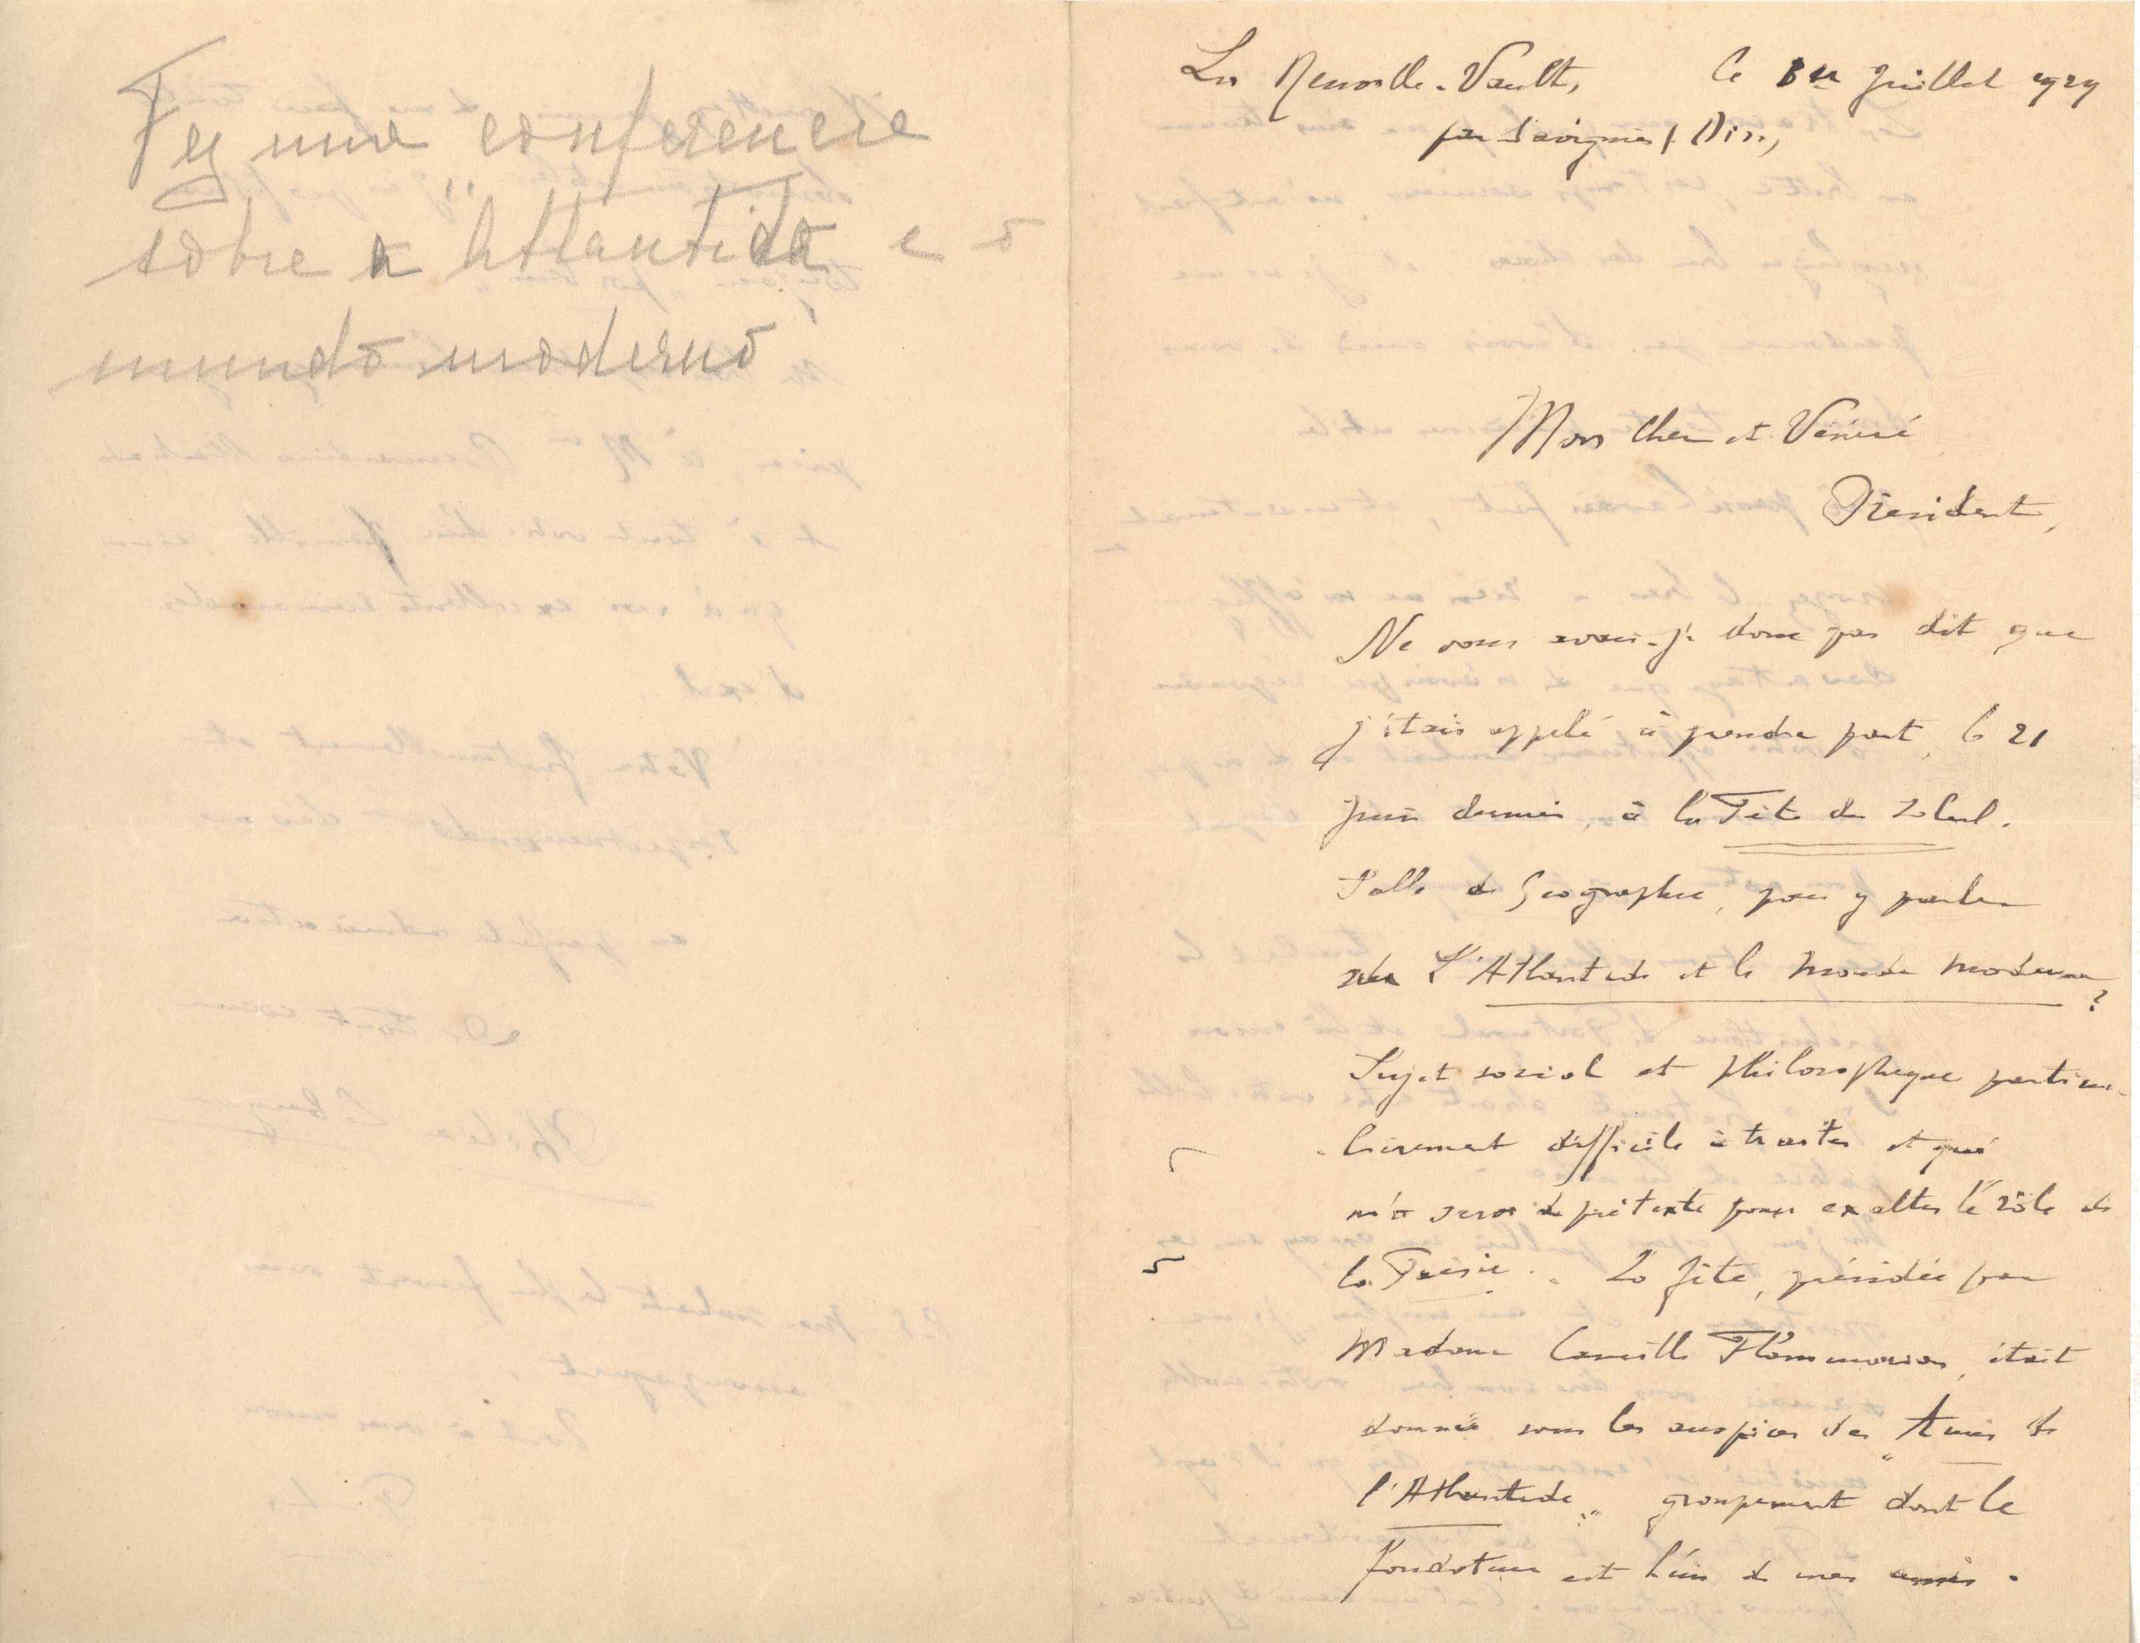 Fez uma conferencia
sobre a "Atlantida e o
mundo moderno"
La Neuville-Vault, le 1er Juillet 1929
par Savignies (Oise)
Mon Cher et Vénéré
Président,
Ne vous avais-je donc pas dit que
j'étais appelé à prendre part, le 21
juin dernier, à la Fête du Soleil.
Salle de Géographie, pour y parler
de L'Atlantide et le monde moderne ?
Sujet social et philosophique particu-
-lièrement difficile à traiter et qui
m'a servi de prétexte pour exalter le rôle de
la Poésie. La fête, présidée par
Madame Camille Flammarion, était
donnée sous les auspices des "Amis de
l'Atlantide", groupement dont le
fondateur est l'un de mes amis.